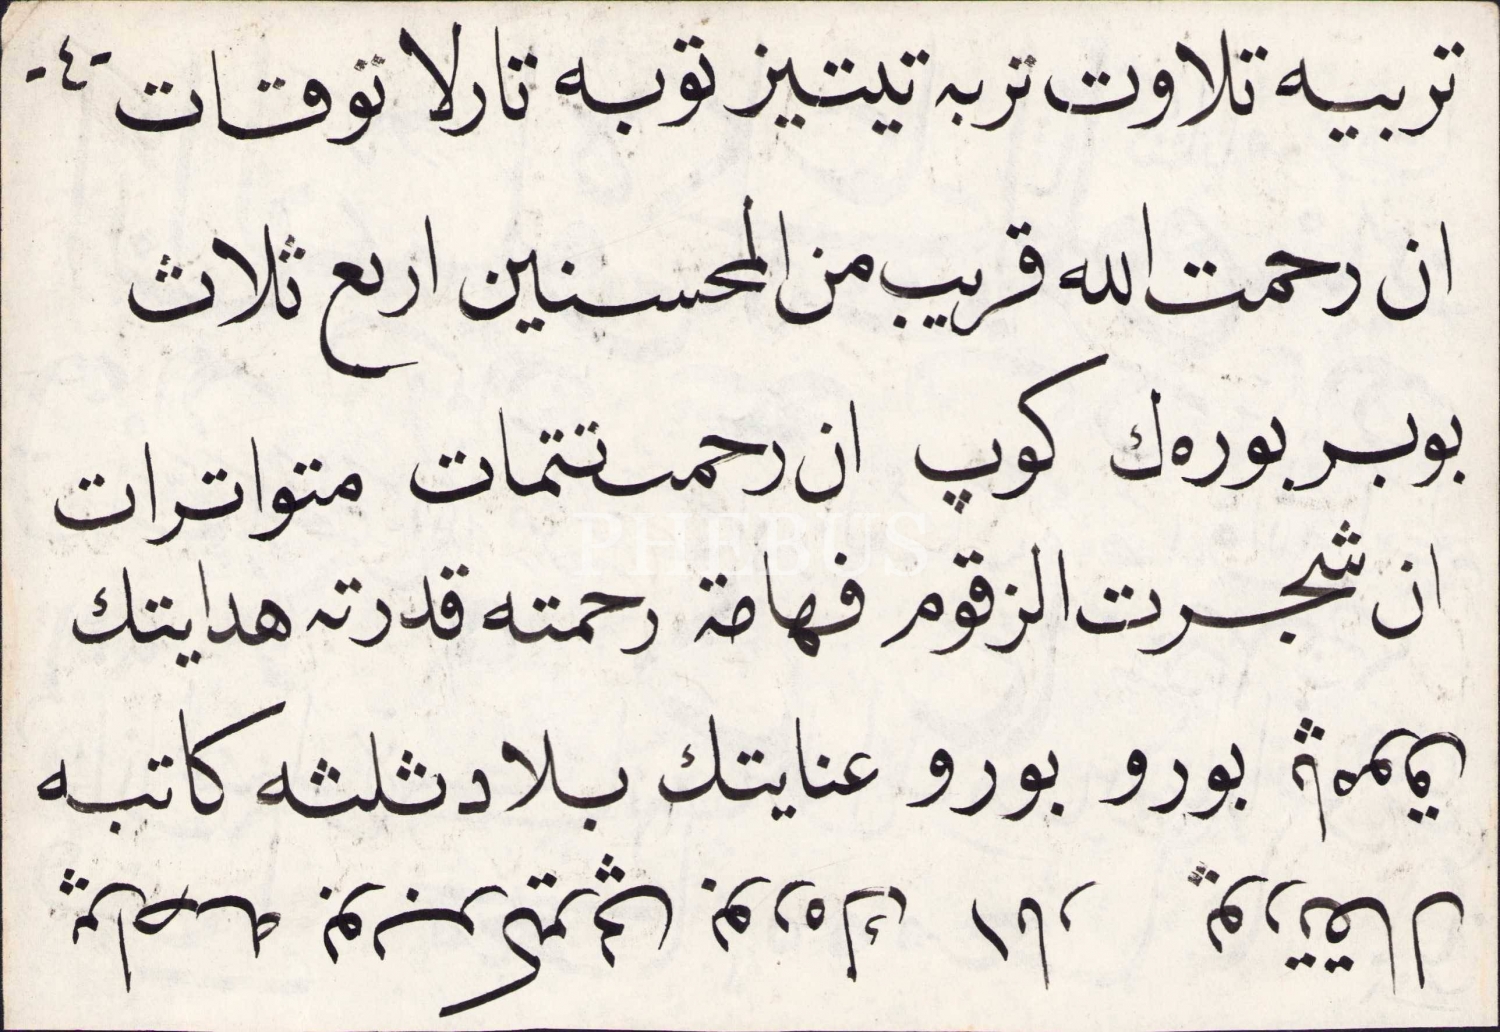 تربيه تلاوت تربه تيتيز توبه تارلا توقات -٤-
ان رحمت الله قريب من المحسنين اربع ثلاث
بوبر بوره‌ك كوپ ان رحمتتمات متواترات
PHEBUS
ان شجرت الزقوم فهامة رحمته قدرته هدايتك
پاموق بورو بورو عنايتك بلاد ثلثه كاتبه
پراصه بوبر بوره‌ك انار پورتقال